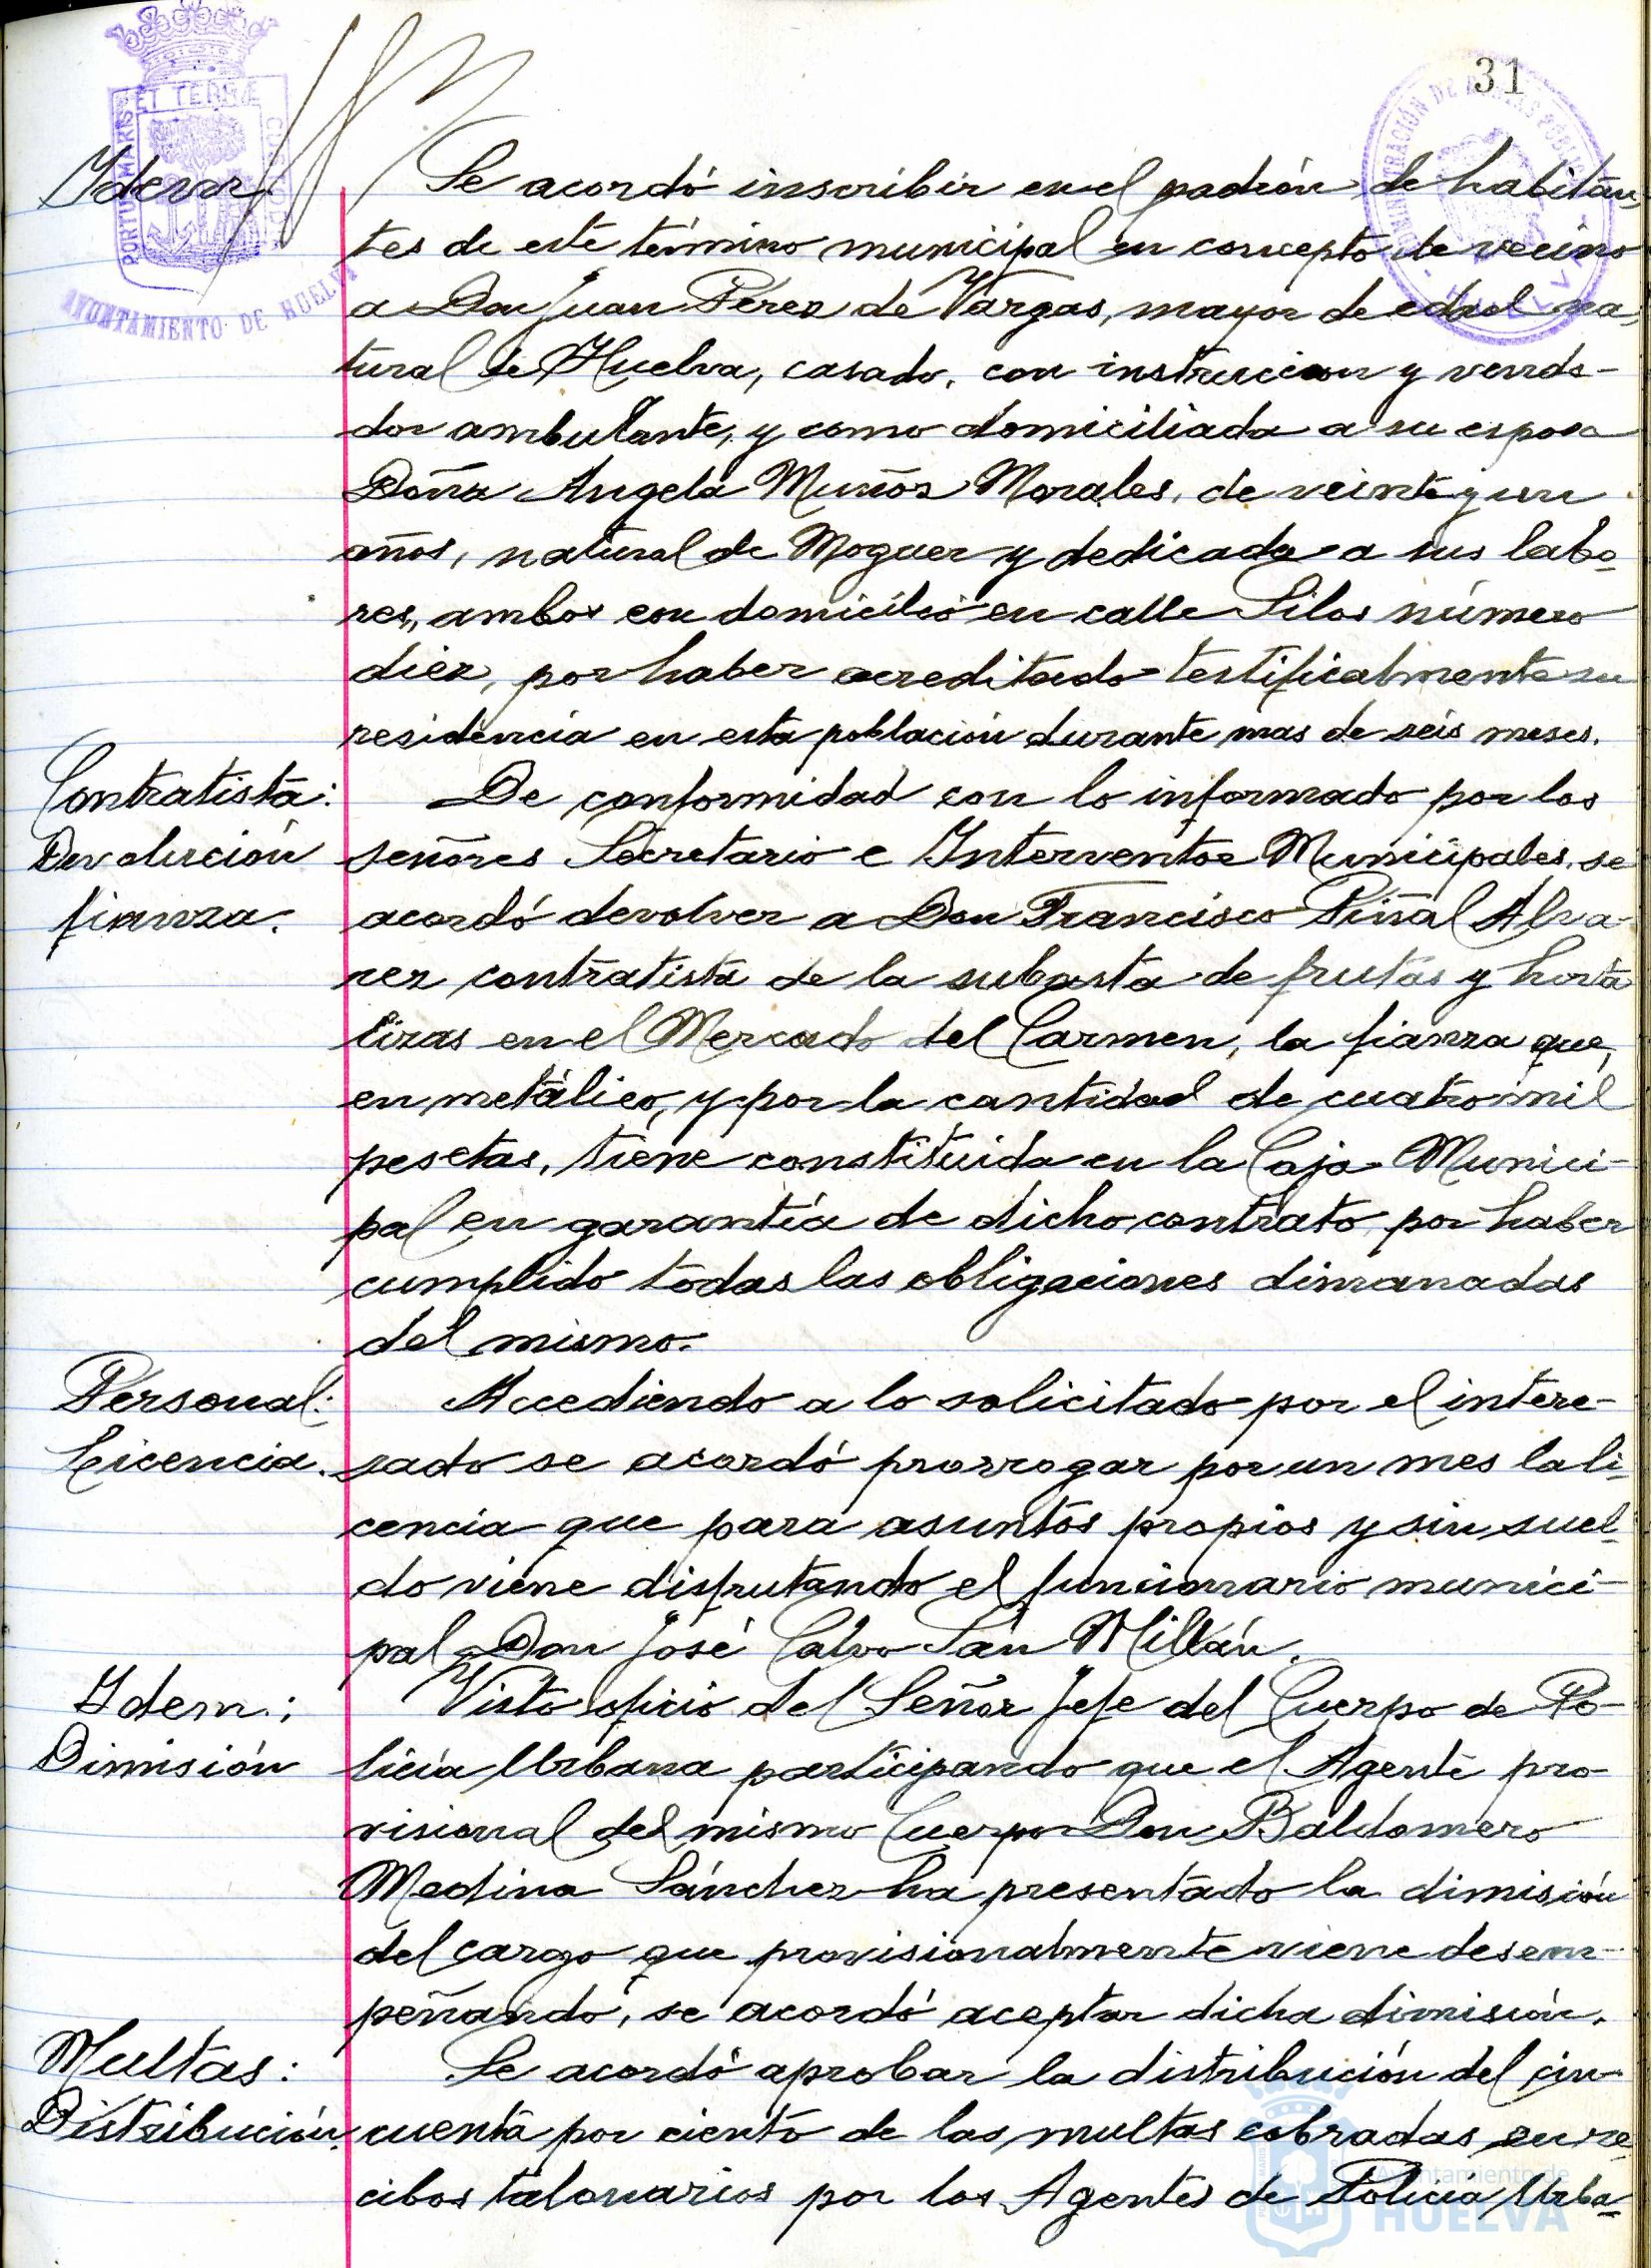 31
PORTUS MARIS ET TERRÆ CUSTODIA
AYUNTAMIENTO DE HUELVA
Idem
Se acordó inscribir en el padrón de habitan-
tes de este término municipal en concepto de vecino
a Don Juan Pérez de Vargas, mayor de edad na-
tural de Huelva, casado, con instruccion y vende-
dor ambulante, y como domiciliada a su esposa
Doña Angela Muñoz Morales, de veinte y un
años, natural de Moguer y dedicada a sus labo-
res, ambos con domicilio en calle Silos número
diez, por haber acreditado testificalmente su
residencia en esta población durante mas de seis meses.
Contratista:
Devolución
fianza.
De conformidad con lo informado por los
señores Secretario e Interventor Municipales, se
acordó devolver a Don Francisco Piñal Alva-
rez contratista de la subasta de frutas y horta
lizas en el Mercado del Carmen, la fianza que,
en metálico, y por la cantidad de cuatro mil
pesetas, tiene constituida en la Caja Munici-
pal en garantía de dicho contrato por haber
cumplido todas las obligaciones dimanadas
del mismo.
Personal:
Licencia.
Accediendo a lo solicitado por el intere-
sado se acordó prorrogar por un mes la li-
cencia que para asuntos propios y sin suel-
do viene disfrutando el funcionario munici-
pal Don José Calvo San Millán.
Idem:
Dimisión
Visto oficio del Señor Jefe del Cuerpo de Po-
licía Urbana participando que el Agente pro-
visional del mismo Cuerpo Don Baldomero
Medina Sánchez ha presentado la dimisión
del cargo que provisionalmente viene desem-
peñando, se acordó aceptar dicha dimisión.
Multas:
Distribución.
Se acordó aprobar la distribución del cin-
cuenta por ciento de las multas cobradas en re-
cibos talonarios por los Agentes de Policía Urba-
Ayuntamiento de
HUELVA